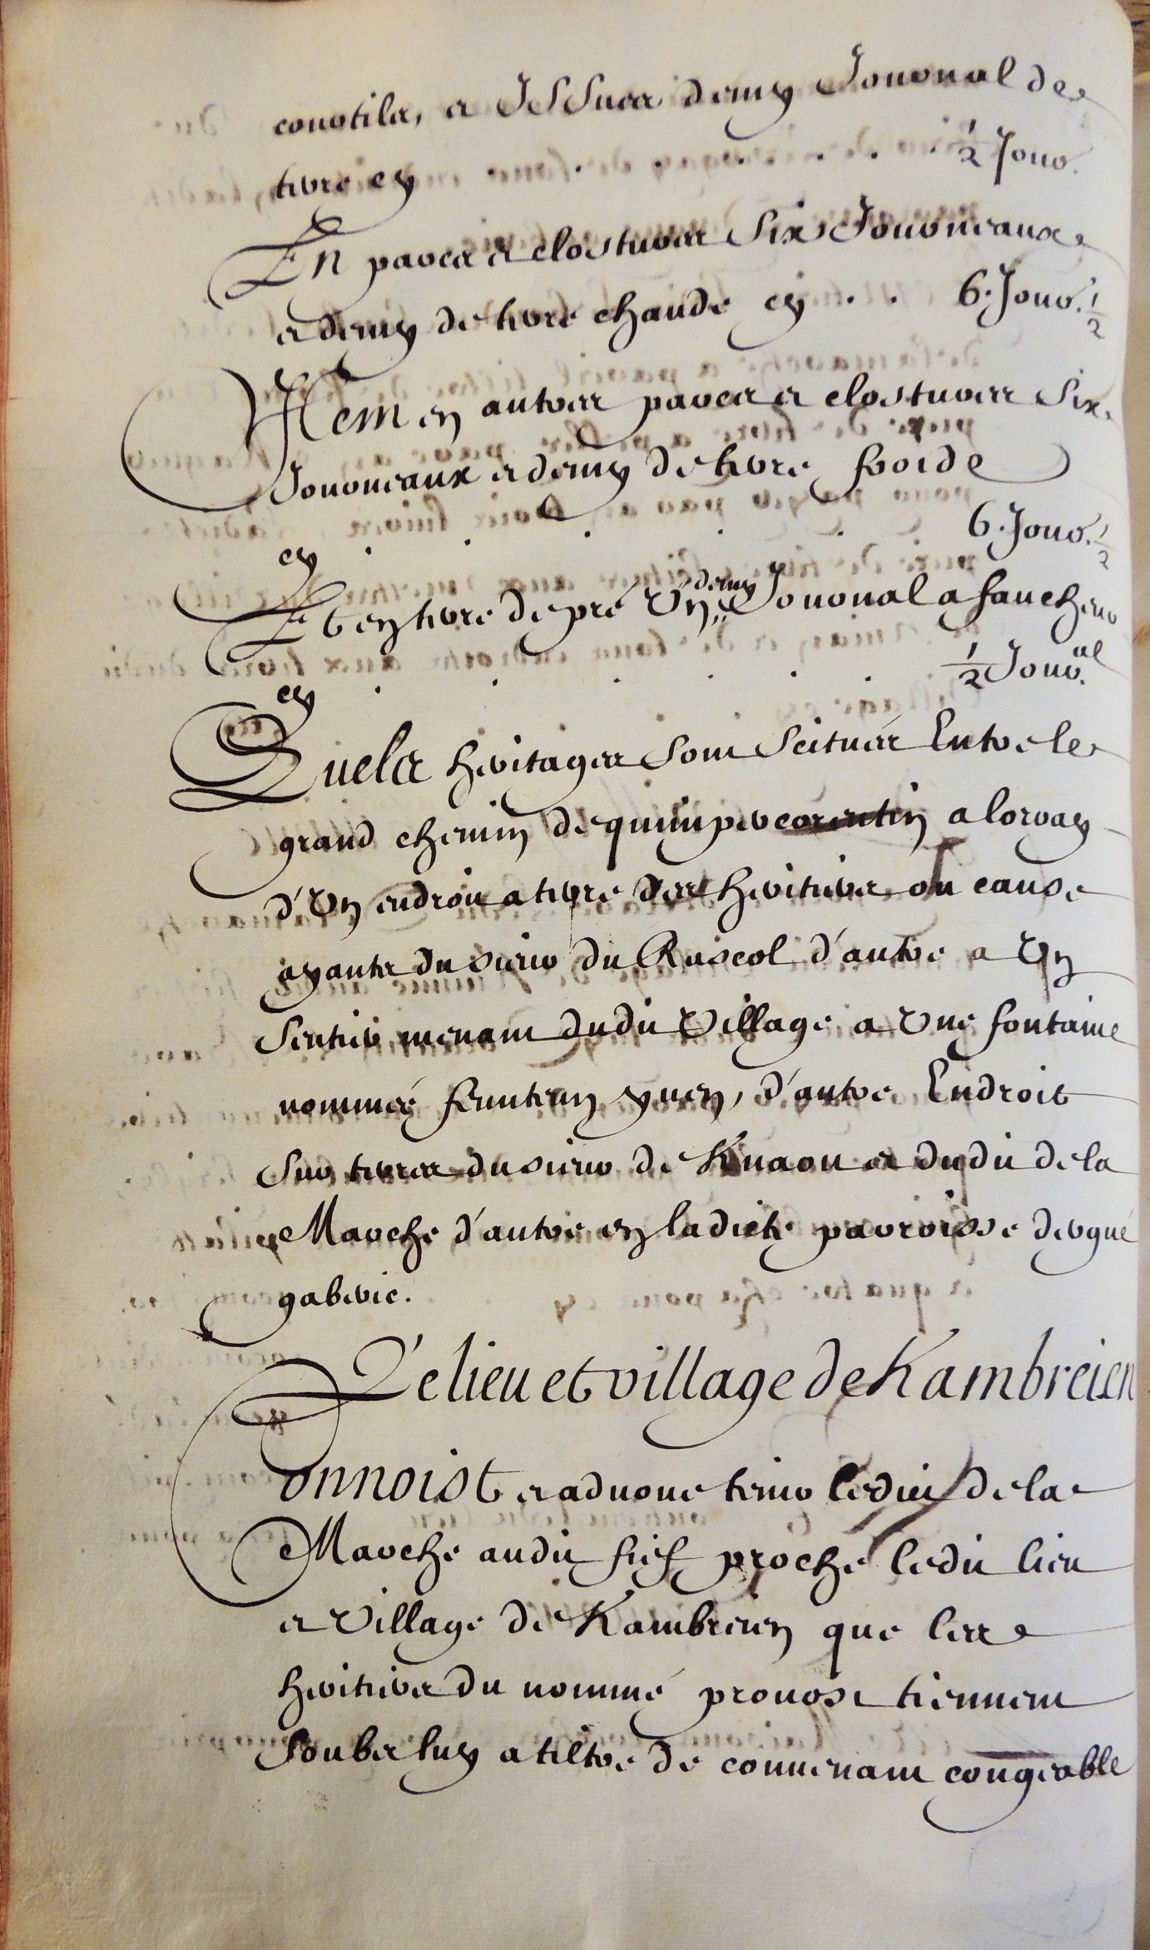 courtils, et Issues demy Journal de
terre cy . . . . . ½ Jour.
En parcs et clostures Six Journeaux
et demy de terre chaude cy . . 6. Jour. ½
Item en autres parcs et clostures Six
Journeaux et demy de terre froide
cy . . . . . 6. Jour. ½
Et en terre de pré Un demy Journal a faucheur
cy . . . . . ½ Jour.al
Quels heritages sont Scitués Entre le
grand chemin de quimpercorentin a lorvay
d'Un endroit a terre des heritiers ou cause
ayants du sieur du Ruscol d'autre a Un
Sentier menant dudit Village a Une fontaine
nommée feunteun yuen, d'autre Endroit
Sur terres du sieur de Knaou et dudit de la
Marche d'autre en ladicte parroisse dergué
gaberic.
Le lieu et village de Kambreien
Connoist et advoue tenir ledit de la
Marche audit fief proche ledit lieu
et Village de Kambreien que les
heritiers du nommé prouost tiennent
Soubs luy a tiltre de convenant congeable